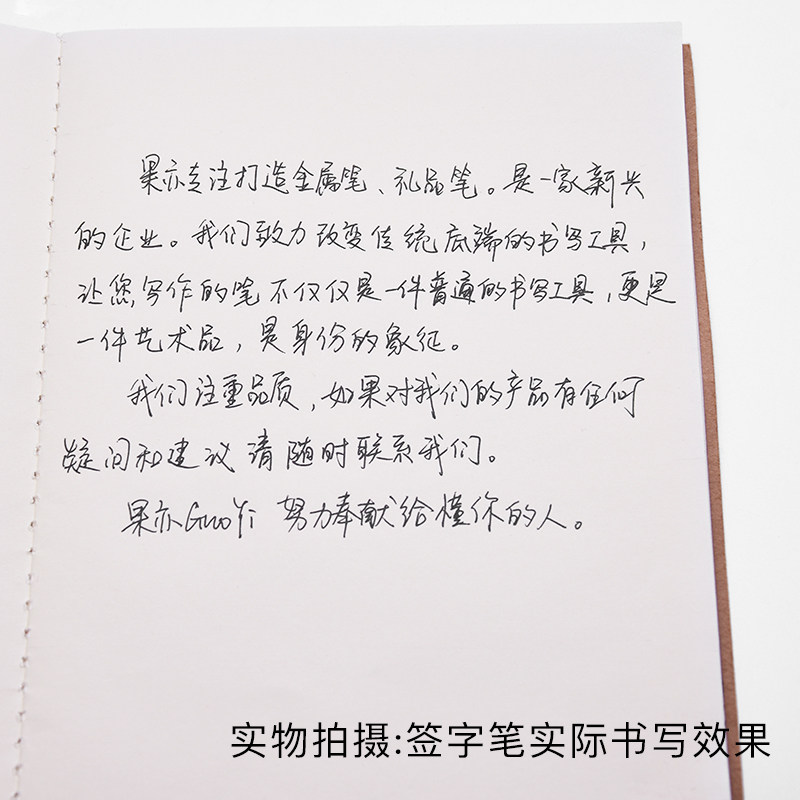 果亦专注打造金属笔、礼品笔。是一家新兴
的企业。我们致力改变传统底端的书写工具，
让您写作的笔不仅仅是一件普通的书写工具，更是
一件艺术品，是身份的象征。
我们注重品质，如果对我们的产品有任何
疑问和建议请随时联系我们。
果亦GuoYi 努力奉献给懂你的人。
实物拍摄:签字笔实际书写效果